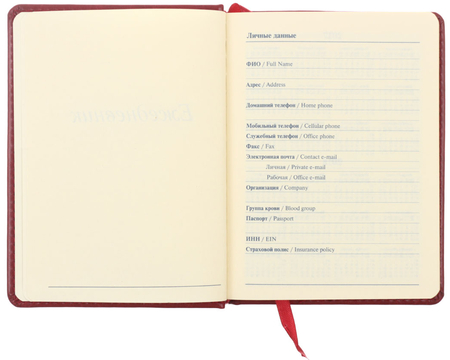 Личные данные
ФИО / Full Name
Адрес / Address
Домашний телефон / Home phone
Мобильный телефон / Cellular phone
Служебный телефон / Office phone
Факс / Fax
Электронная почта / Contact e-mail
Личная / Private e-mail
Рабочая / Office e-mail
Организация / Company
Группа крови / Blood group
Паспорт / Passport
ИНН / EIN
Страховой полис / Insurance policy